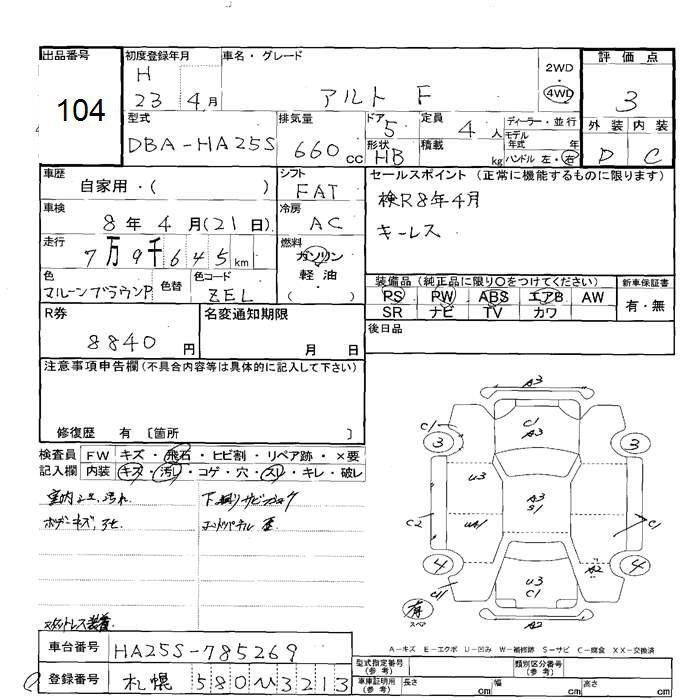 出品番号
104
初度登録年月
H
23 4月
車名・グレード
アルト F
2WD
・
4WD
評価点
3
外装 内装
D C
型式
DBA-HA25S
排気量
660cc
ドア
5
形状
HB
定員
4人
積載
kg
ディーラー・並行
モデル年式 年
ハンドル 左・右
車歴
自家用・( )
シフト
FAT
セールスポイント (正常に機能するものに限ります)
検R8年4月
キーレス
車検
8年4月(21日)
冷房
AC
走行
7万9千645km
燃料
ガソリン
軽油
( )
色
マルーンブラウンP
色替
色コード
ZEL
装備品 (純正品に限り○をつけてください)
PS PW ABS エアB AW
SR ナビ TV カワ
新車保証書
有・無
R券
8840円
名変通知期限
月 日
後日品
注意事項申告欄(不具合内容等は具体的に記入して下さい)
修復歴 有 〔箇所 〕
検査員記入欄
FW キズ・飛石・ヒビ割・リペア跡・×要
内装 キズ・汚レ・コゲ・穴・スレ・キレ・破レ
A3
C1
A3
C1
3
3
U3
A3
S1
C2
C1
4
4
A2
U3
C1
C1
A2
スペア
A-キズ E-エクボ U-凹み W-補修跡 S-サビ C-腐食 XX-交換済
車台番号
HA25S-785269
登録番号
札幌 580 ひ 3213
型式指定番号(参考)
類別区分番号(参考)
車庫証明用(参考)
長さ cm
幅 cm
高さ cm